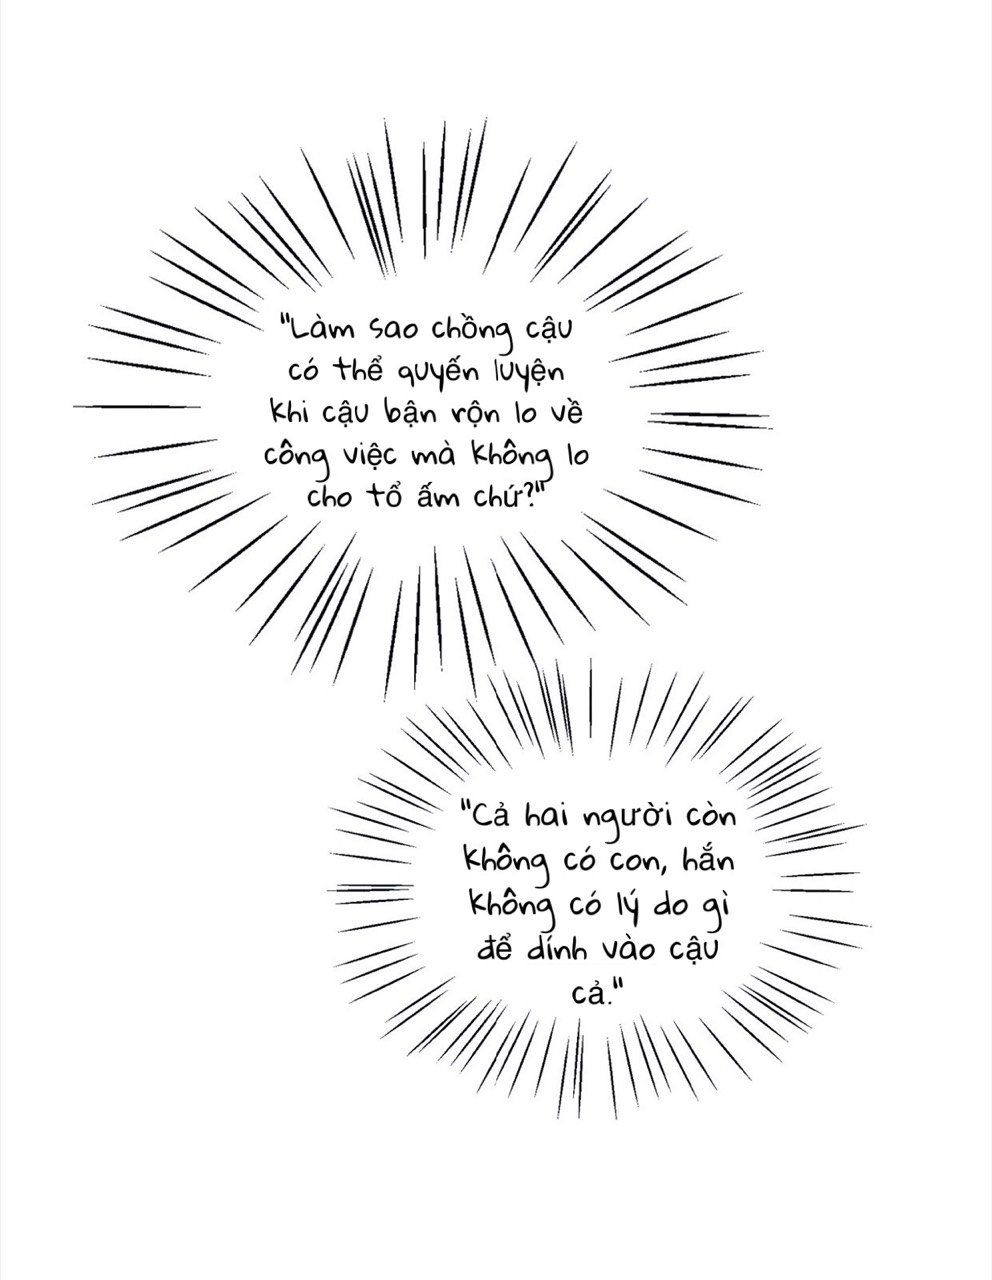 "Làm sao chồng cậu
có thể quyến luyện
khi cậu bận rộn lo về
công việc mà không lo
cho tổ ấm chứ?"
"Cả hai người còn
không có con, hắn
không có lý do gì
để dính vào cậu
cả."